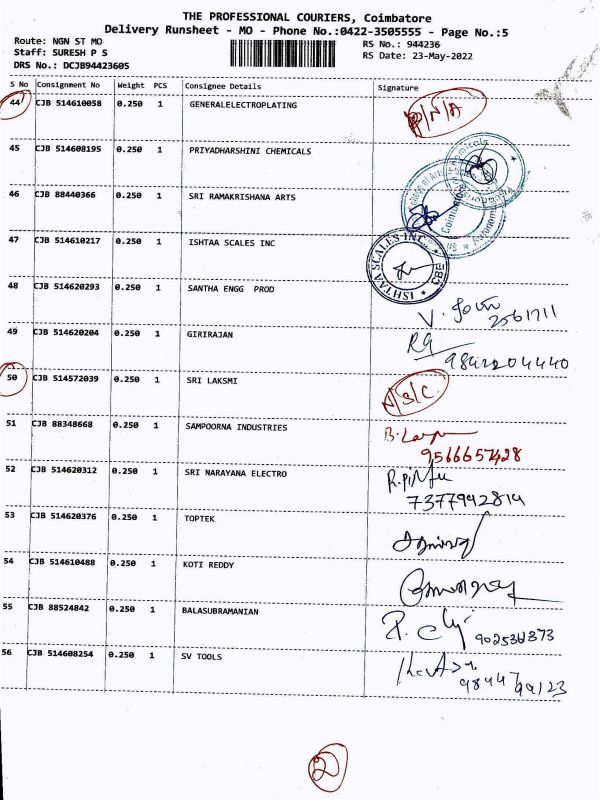 THE PROFESSIONAL COURIERS, Coimbatore
Delivery Runsheet - MO - Phone No.:0422-3505555 - Page No.:5
Route: NGN ST MO
Staff: SURESH P S
DRS No.: DCJB94423605
RS No.: 944236
RS Date: 23-May-2022
S No Consignment No Weight PCS Consignee Details Signature
44 CJB 514610058 0.250 1 GENERALELECTROPLATING D/N/A
45 CJB 514608195 0.250 1 PRIYADHARSHINI CHEMICALS
46 CJB 88440366 0.250 1 SRI RAMAKRISHANA ARTS
47 CJB 514610217 0.250 1 ISHTAA SCALES INC ISHTAA SCALES INC. CBE
48 CJB 514620293 0.250 1 SANTHA ENGG PROD
2561711
49 CJB 514620204 0.250 1 GIRIRAJAN
9842204440
50 CJB 514572039 0.250 1 SRI LAKSMI N/S/C
51 CJB 88348668 0.250 1 SAMPOORNA INDUSTRIES
9566657428
52 CJB 514620312 0.250 1 SRI NARAYANA ELECTRO
7377942814
53 CJB 514620376 0.250 1 TOPTEK
54 CJB 514610488 0.250 1 KOTI REDDY
55 CJB 88524842 0.250 1 BALASUBRAMANIAN
56 CJB 514608254 0.250 1 SV TOOLS
2